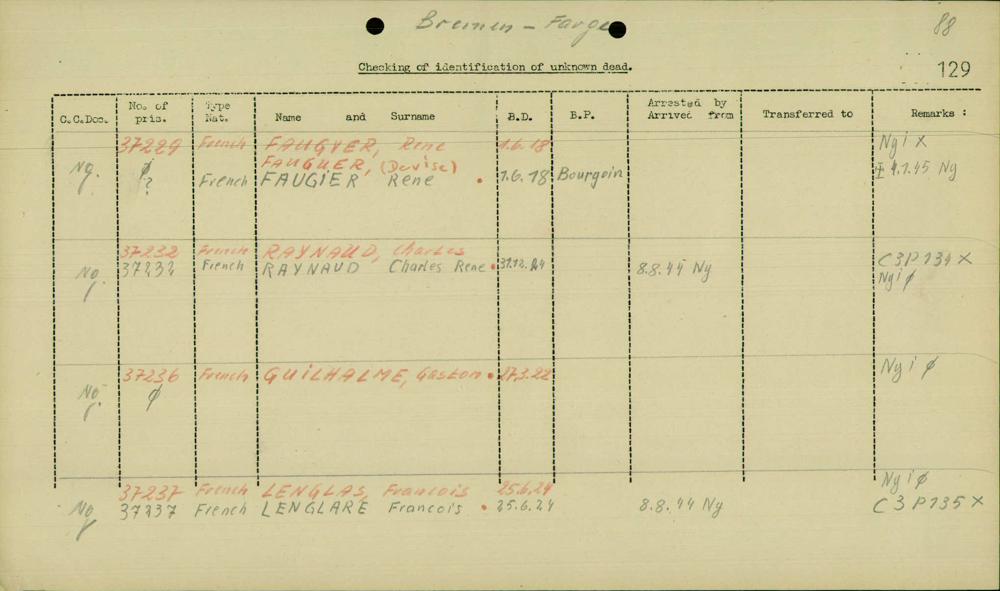 Bremen - Farge
88
129
Checking of identification of unknown dead.
C.C.Doc. No. of pris. Type Nat. Name and Surname B.D. B.P. Arrested by Arrived from Transferred to Remarks :
37229 French FAUGYER, Rene 1.6.18 Ng i X
Ng. ø FAUGUER, (Devise)
? French FAUGIER Rene 1.6.18 Bourgoin 4.1.45 Ng
37232 French RAYNAUD, Charles
Ng 37232 French RAYNAUD Charles Rene 31.12.24 8.8.44 Ng C3P134 X
Ng i ø
37236 French GUILHALME, Gaston 27.3.22 Ng i ø
Ng. ø
37237 French LENGLAS, Francois 25.6.24 Ng i ø
Ng 37237 French LENGLARE Francois 25.6.24 8.8.44 Ng C3P135 X